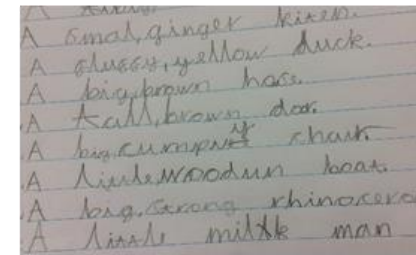 A
A smal, ginger kiten.
A flussy, yellow duck.
A big, brown hors.
A tall, brown dor.
A big, cumpny chair.
A little woodun boat.
A big, strong rhinocero
A little milk man